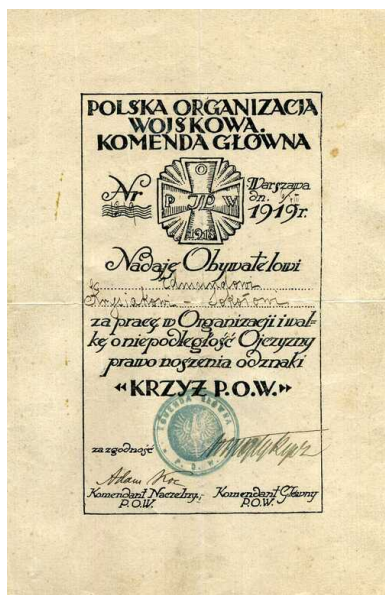 POLSKA ORGANIZACJA
WOJSKOWA.
KOMENDA GŁÓWNA
O
Nr Warszawa
P JP W dn.
1918 1919 r.
Nadaję Obywatelowi
Edmundowi
- Sokołowi
za pracę w Organizacji i wal-
kę o niepodległość Ojczyzny
prawo noszenia odznaki
"KRZYŻ P.O.W."
KOMENDA GŁÓWNA
P. O. W.
za zgodność
Adam Koc
Komendant Naczelny; Komendant Główny
P.O.W. P.O.W.